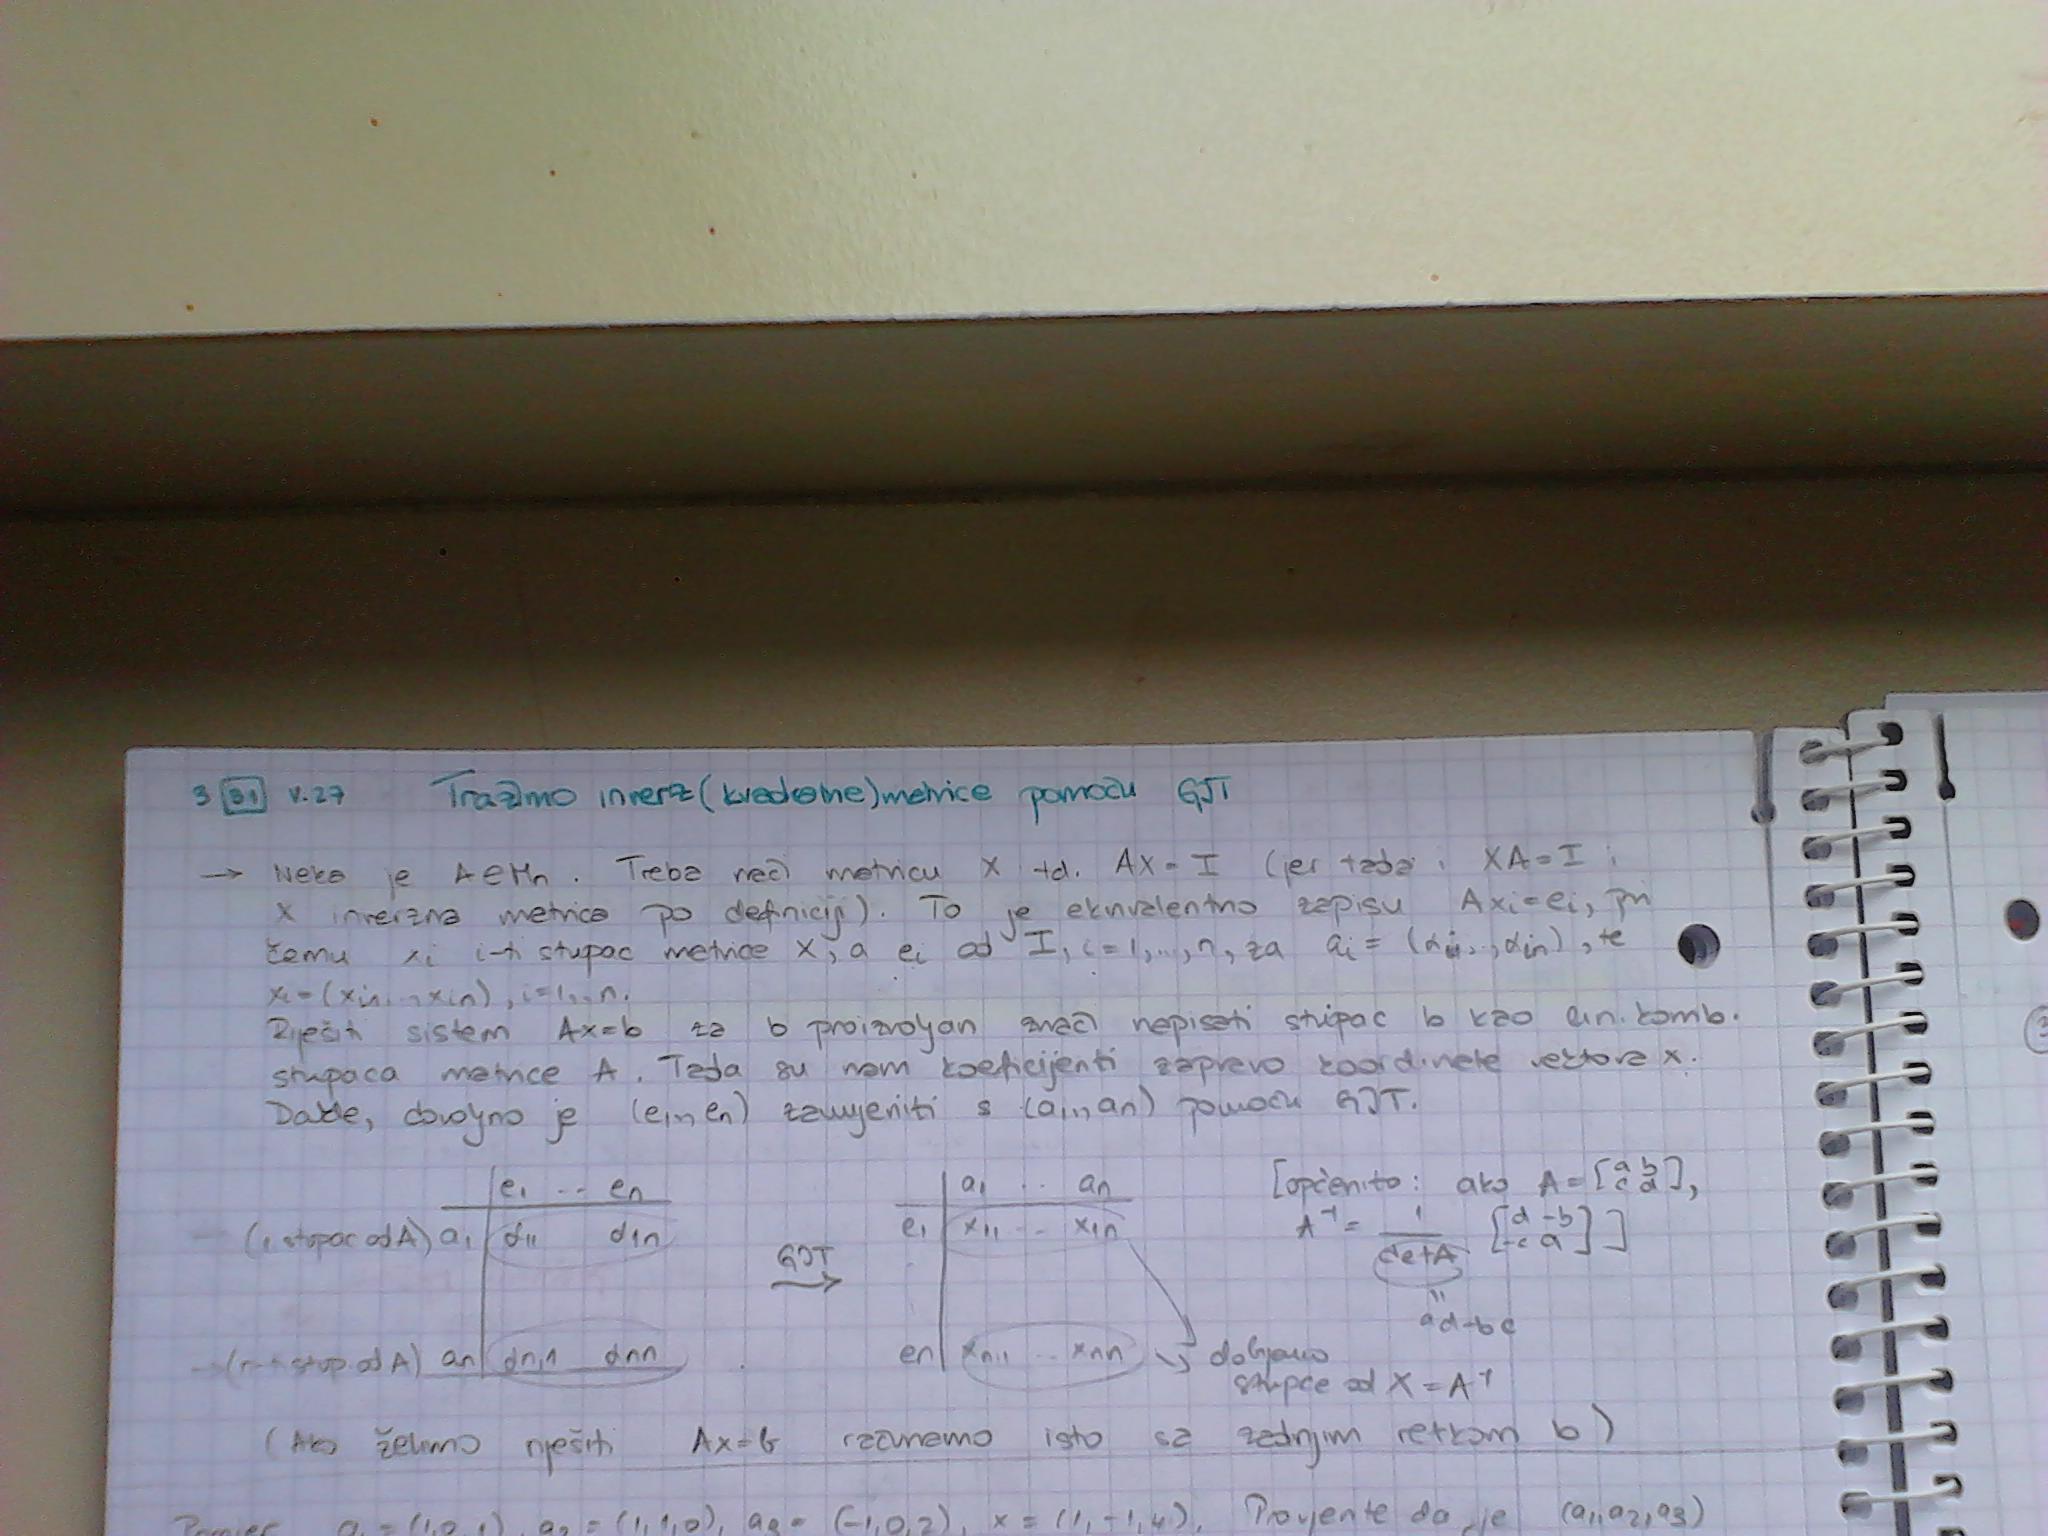 3 31 V.27 Tražimo inverz (kvadratne) matrice pomoću GJT
→ Neka je A∈Mn. Treba naći matricu X td. AX=I (jer tada i XA=I i
X inverzna matrica po definiciji). To je ekvivalentno zapisu Axi=ei, pri
čemu xi i-ti stupac matrice X, a ei od I, i=1,...,n, za ai = (αi1,..,αin), te
xi=(xi1,..,xin), i=1,..,n.
Riješiti sistem Ax=b za b proizvoljan znači napisati stupac b kao lin. komb.
stupaca matrice A. Tada su nam koeficijenti zapravo koordinate vektora x.
Dakle, dovoljno je (e1,,en) zamijeniti s (a1,,an) pomoću GJT.
e1 ... en
(1 stupac od A) a1 α11 α1n
→(n-ti stup. od A) an αn1 αnn
GJT →
a1 ... an
e1 x11 ... x1n
en xn1 ... xnn → dobijamo
stupce od X = A⁻¹
[općenito: ako A=[a b c d],
A⁻¹= 1/detA [d -b -c a]]
=
ad-bc
(Ako želimo riješiti Ax=b računamo isto sa zadnjim retkom b)
Primjer a1=(1,0,1), a2=(1,1,0), a3=(-1,0,2), x=(1,-1,4). Provjerite da je (a1,a2,a3)